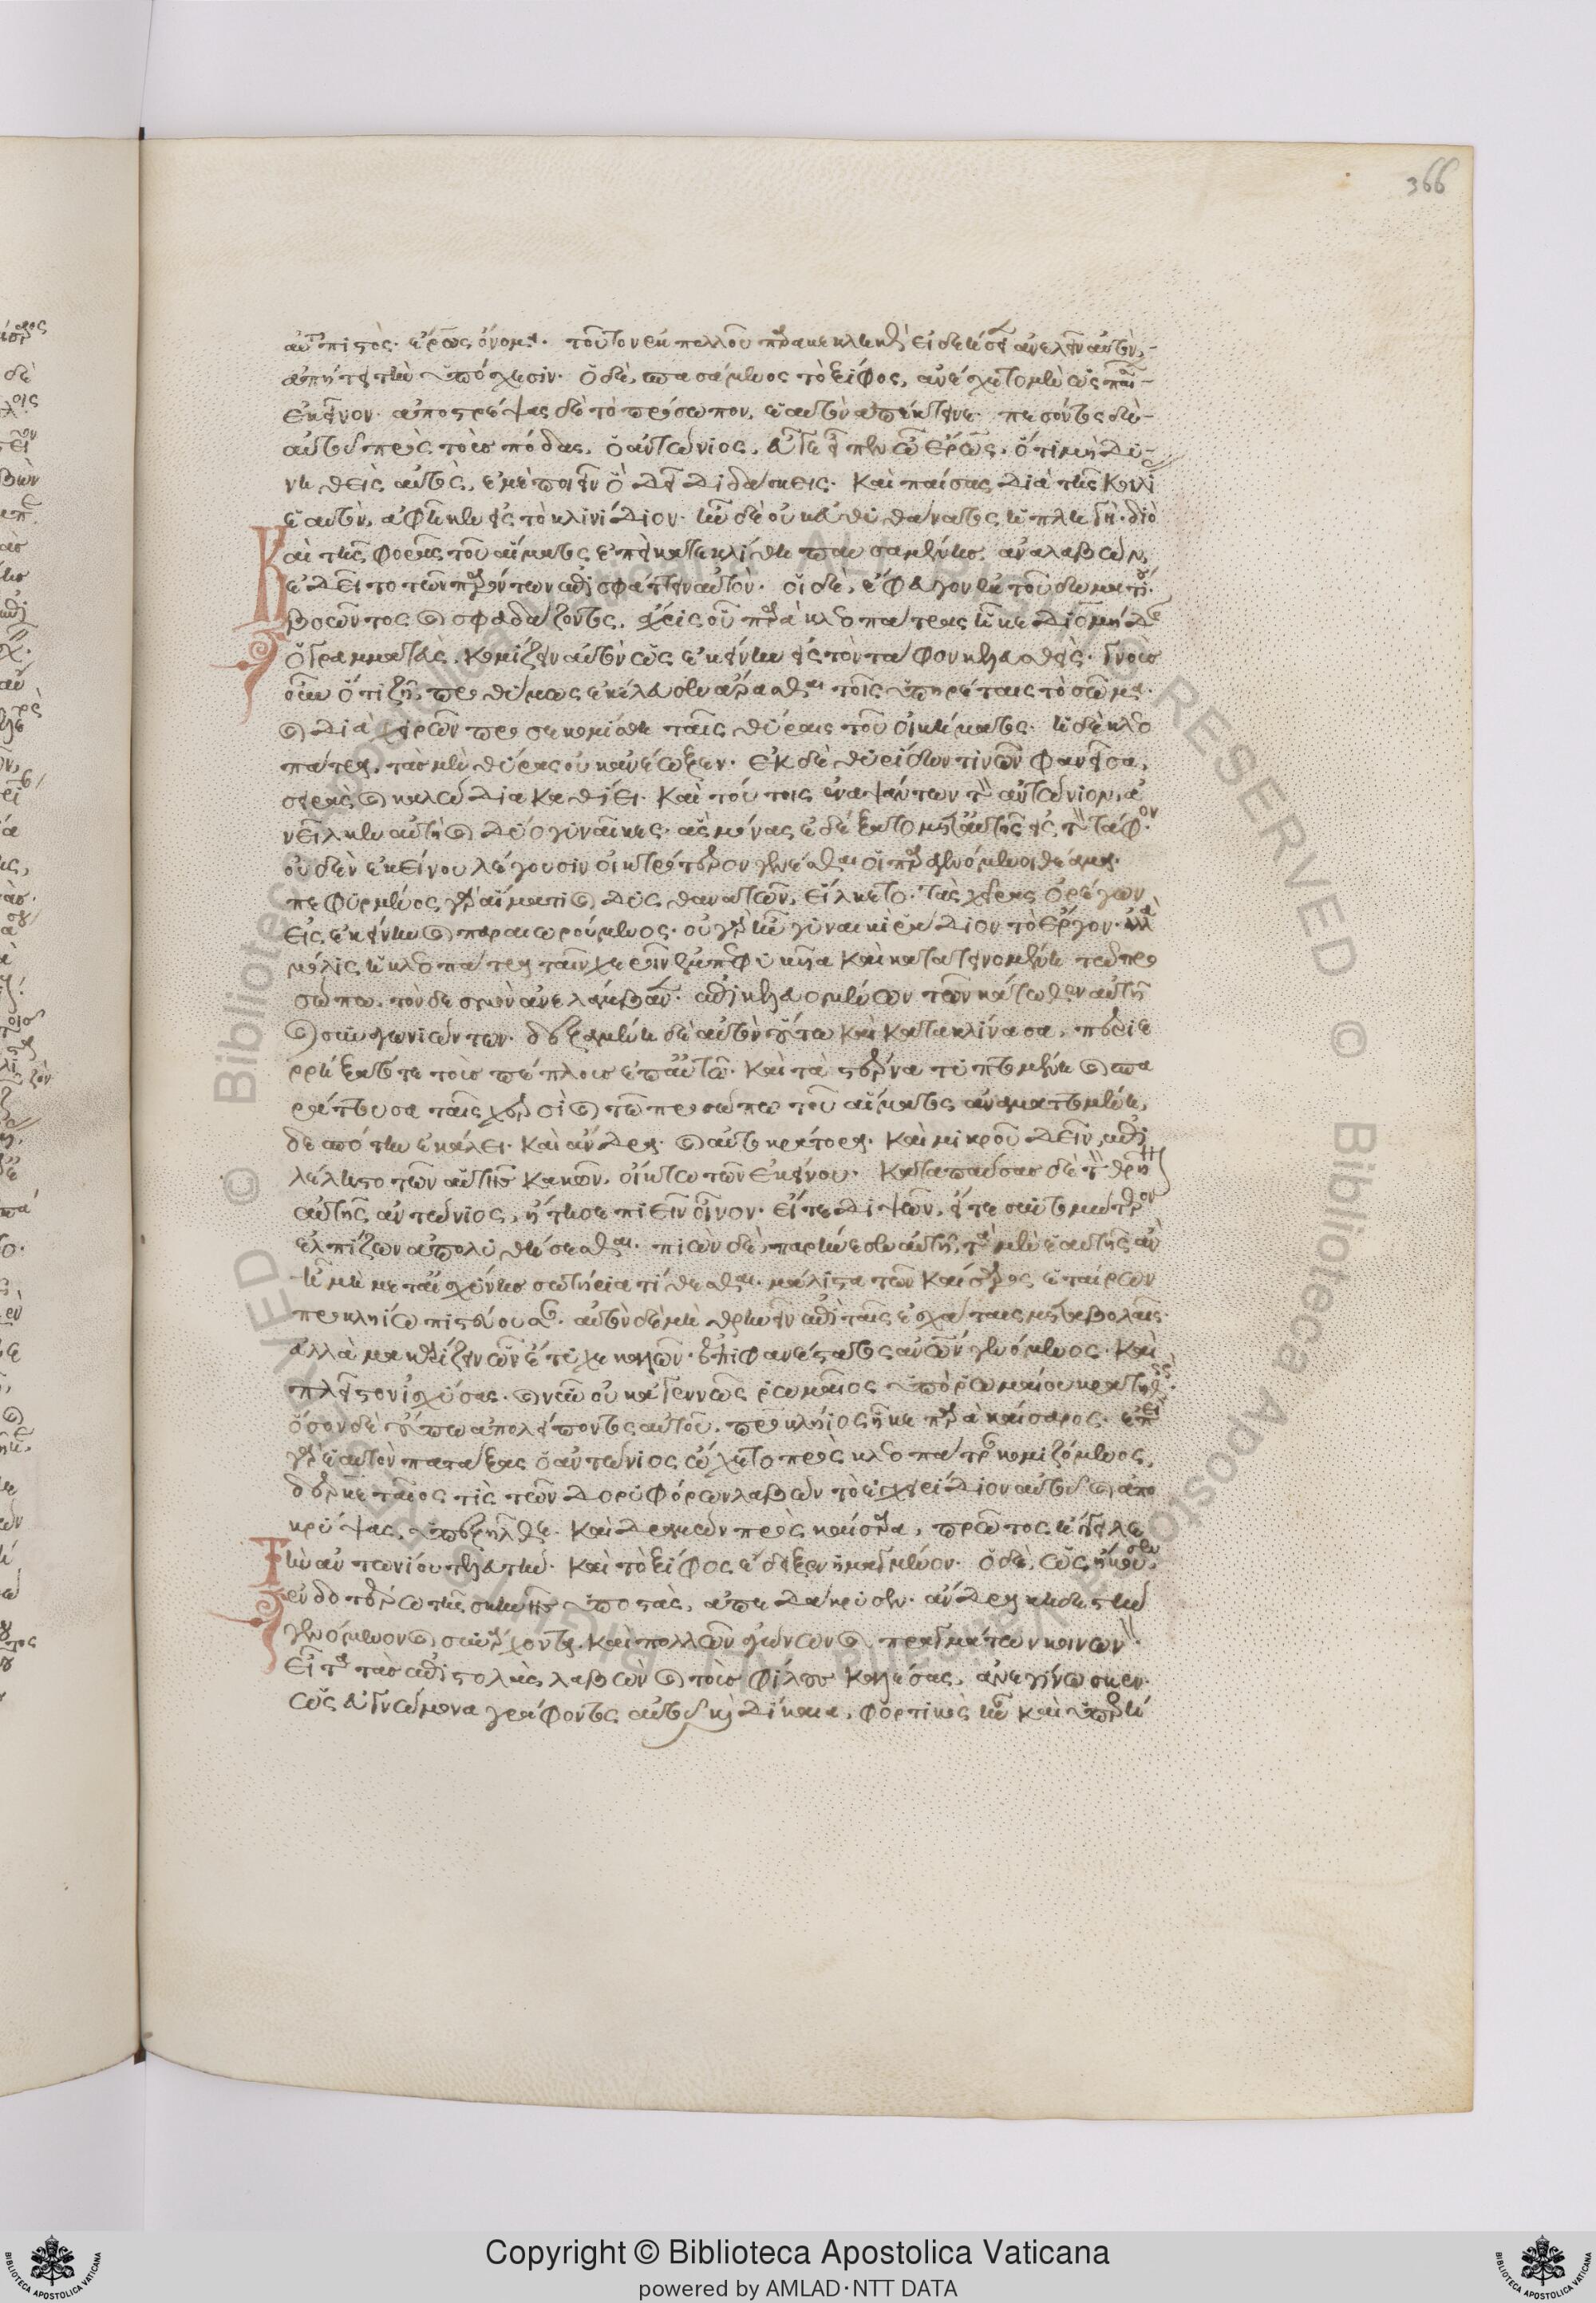 αὐτῶ πιστὸς· ἔρως ὄνομα· τοῦτον ἐκ πολλοῦ παρακεκληκὼς εἰ δεήσειεν ἀνελεῖν αὐτὸν,
ἀπῄτει τὴν ὑπόσχεσιν· ὁ δὲ, σπασάμενος τὸ ξίφος, ἀνέσχετο μὲν ὡς παίσων
ἐκεῖνον· ἀποστρέψας δὲ τὸ πρόσωπον, ἑαυτὸν ἀπέκτεινε· πεσόντος δὲ
αὐτοῦ πρὸς τοὺς πόδας, ὁ ἀντώνιος, εὖγε εἶπεν ὦ ἔρως, ὅτι μὴ δυ
νηθεὶς αὐτὸς, ἐμὲ ποιεῖν ὃ δεῖ διδάσκεις· καὶ παίσας διὰ τῆς κοιλί
ἑαυτὸν, ἀφῆκεν εἰς τὸ κλινίδιον· ἦν δὲ οὐκ εὐθυθάνατος ἡ πληγὴ· διὸ
καὶ τῆς φορᾶς τοῦ αἵματος ἐπεὶ κατεκλίθη παυσαμένης, ἀναλαβὼν,
ἐδεῖτο τῶν παρόντων ἐπισφάττειν αὐτὸν· οἱ δὲ, ἔφευγον ἐκ τοῦ δωματίου·
βοῶντος καὶ σφαδάζοντος, ἄχρις οὗ παρὰ κλεοπάτρας ἧκε διομήδης
ὁ γραμματεὺς, κομίζειν αὐτὸν ὡς ἐκείνην εἰς τὸν τάφον κελευσθεὶς· γνοὺς
οὖν ὅτι ζῆ, προθύμως ἐκέλευσεν ἄρασθαι τοῖς ὑπηρέταις τὸ σῶμα·
καὶ διὰ χειρῶν προσεκομίσθη ταῖς θύραις τοῦ οἰκήματος· ἡ δὲ κλεο
πάτρα, τὰς μὲν θύρας οὐκ ἀνέωξεν· ἐκ δὲ θυρίδων τινῶν φανεῖσα,
σειρὰς καὶ καλώδια καθίει· καὶ τούτοις ἐναψάντων τὸν ἀντώνιον, ἀ
νεῖλκεν αὐτὴ καὶ δύο γυναῖκες· ἃς μόνας ἐδέξατο μετ' αὐτῆς εἰς τὸν τάφον·
οὐδὲν ἐκείνου λέγουσιν οἰκτρότερον γενέσθαι οἱ παραγενόμενοι θέαμα·
πεφυρμένος γὰρ αἵματι καὶ δυσθανατῶν, εἵλκετο· τὰς χεῖρας ὀρέγων
εἰς ἐκείνην καὶ παραιωρούμενος· οὐ γὰρ ἦν γυναικὶ ῥάδιον τὸ ἔργον· ἀλλὰ
μόλις ἡ κλεοπάτρα ταῖν χεροῖν ἐμπεφυκυῖα καὶ κατατεινομένη τῶ προ
σώπω, τὸν δεσμὸν ἀνελάμβανεν· ἐπικελευομένων τῶν κάτωθεν αὐτῆ
καὶ συναγωνιώντων· δεξαμένη δὲ αὐτὸν οὕτω καὶ κατακλίνασα, περιε
ρρήξατό τε τοὺς πέπλους ἐπ' αὐτῶ· καὶ τὰ στέρνα τυπτομένη καὶ σπα
ράττουσα ταῖς χερσὶ καὶ τῶ προσώπω τοῦ αἵματος ἀναματτομένη,
δεσπότην ἐκάλει· καὶ ἄνδρα· καὶ αὐτοκράτορα· καὶ μικροῦ δεῖν, ἐπι
λέληστο τῶν αὑτῆς κακῶν, οἴκτω τῶν ἐκείνου· καταπαύσας δὲ τὸν θρῆν
αὐτῆς ἀντώνιος, ἤτησε πιεῖν οἶνον· εἴτε διψῶν, εἴτε συντομώτερον
ἐλπίζων ἀπολυθήσεσθαι· πιὼν δὲ, παρήνεσεν αὐτῆ, τὰ μὲν ἑαυτῆς ἂν
ἦ μὴ μετ' αἰσχύνης σωτήρια τίθεσθαι· μάλιστα τῶν καίσαρος ἑταίρων
προκληίω πιστεύουσαν· αὐτὸν δὲ μὴ θρηνεῖν ἐπὶ ταῖς ἐσχάταις μεταβολαῖς·
ἀλλὰ μακαρίζειν ὧν ἔτυχε καλῶν· ἐπιφανέστατος ἀνθρώπων γενόμενος· καὶ
πλεῖστον ἰσχύσας· καὶ νῦν οὐκ ἀγεννῶς ῥωμαῖος ὑπὸ ῥωμαίου κρατηθεὶς·
ὅσον δὲ οὔπω ἀπολείποντος αὐτοῦ, προκλήιος ἧκε παρὰ καίσαρος· ἐπεὶ
γὰρ ἑαυτὸν πατάξας ὁ ἀντώνιος ὤχετο πρὸς κλεοπάτραν κομιζόμενος,
δερκεταῖος τὶς τῶν δορυφόρων λαβὼν τὸ ἐγχειρίδιον αὐτοῦ καὶ ἀπο
κρύψας, ὑπεξῆλθε· καὶ δραμὼν πρὸς καίσαρα, πρῶτος ἤγγειλε
τὴν ἀντωνίου τελευτὴν· καὶ τὸ ξίφος ἔδειξεν ἡμαγμένον· ὁ δὲ, ὡς ἤκουσεν,
ἐνδοτέρω τῆς σκηνῆς ὑποστὰς, ἀπεδάκρυσεν· ἄνδρα κηδεστὴν
γενόμενον καὶ συνάρχοντα· καὶ πολλῶν ἀγώνων καὶ πραγμάτων κοινωνὸν·
εἶτα τὰς ἐπιστολὰς λαβὼν καὶ τοὺς φίλους καλέσας, ἀνεγίνωσκεν·
ὡς εὐγνώμονα γράφοντος αὐτοῦ καὶ δίκαια, φορτικὸς ἦν καὶ ὑπερή
366
Copyright © Biblioteca Apostolica Vaticana
powered by AMLAD·NTT DATA